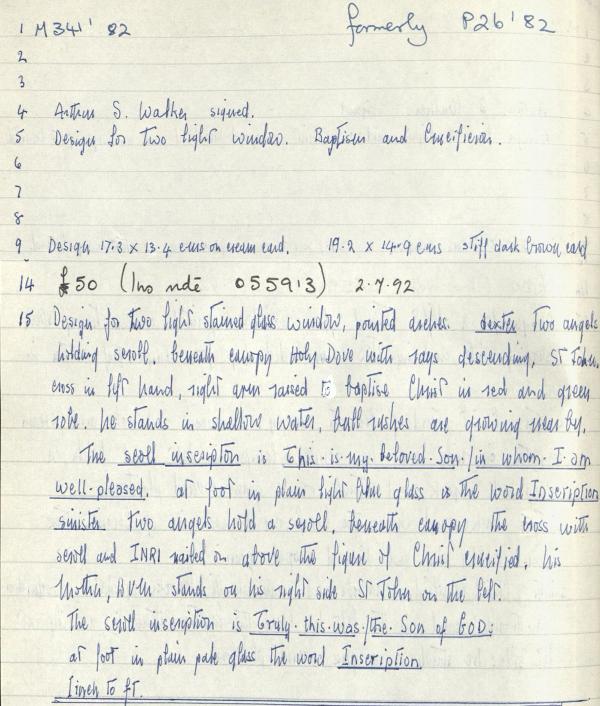 1 M341' 82 formerly P26' 82
2
3
4 Arthur S. Walker signed.
5 Design for two light window. Baptism and Crucifixion.
6
7
8
9 Design 17.3 x 13.4 cms on cream card. 19.2 x 14.9 cms stiff dark brown card
14 £50 (Ins note 055913) 2.7.92
15 Design for two light stained glass window, pointed arches. dexter Two angels
holding scroll, beneath canopy Holy Dove with rays descending, St John,
cross in left hand, right arm raised to baptise Christ in red and green
robe, he stands in shallow water, bull rushes are growing near by.
The scroll inscription is This·is·my·beloved·Son·/in whom·I·am
well·pleased. at foot in plain light blue glass is the word Inscription
sinister two angels hold a scroll, beneath canopy the cross with
scroll and INRI nailed on above the figure of Christ crucified, his
Mother, BVM stands on his right side St John on the left.
The scroll inscription is Truly·this·was·/the·Son of GOD:
at foot in plain pale glass the word Inscription
1 inch to ft.